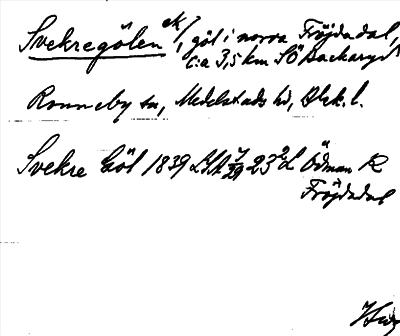 Svekregölen ek/, göl i norra Fröjdadal,
c:a 3,5 km SÖ Backaryd
Ronneby sn, Medelstads hd, Blek. l.
Svekre Göl 1839 LSA 7/29 23 2 L Ödman R
Fröjdadal